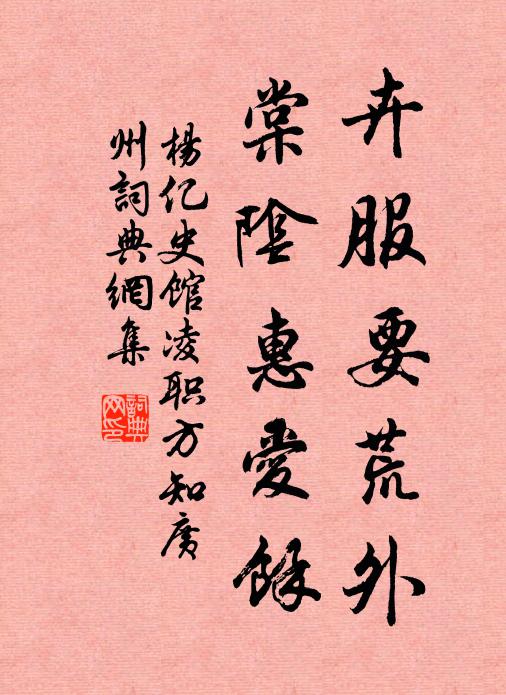 卉服要荒外
棠陰惠愛餘
楊亿史館凌职方知廣
州詞典網集
詞典网印